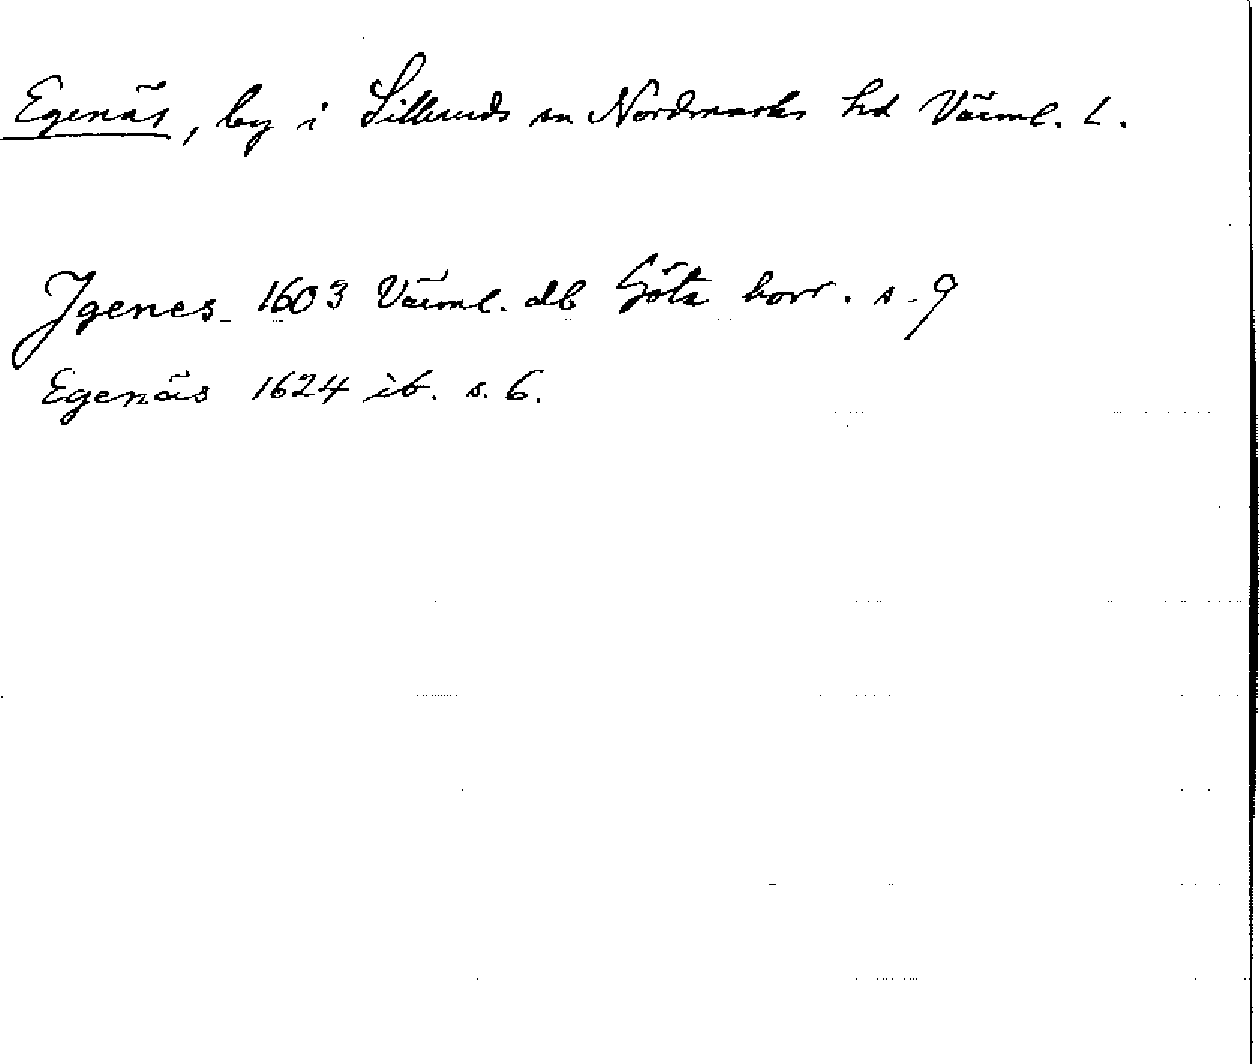 Egenäs, by i Silleruds sn Nordmarks hd Värml. L.
Jgenes 1603 Värml. db Göta hovr. s. 9
Egenäs 1624 ib. s. 6.